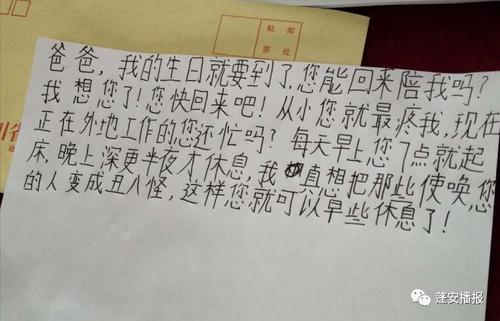 贴 邮
票 处
爸爸，我的生日就要到了，您能回来陪我吗？
我想您了！您快回来吧！从小您就最疼我，现在
正在外地工作的您还忙吗？每天早上您7点就起
床，晚上深更半夜才休息，我真想把那些使唤您
的人变成丑八怪，这样您就可以早些休息了！
蓬安播报